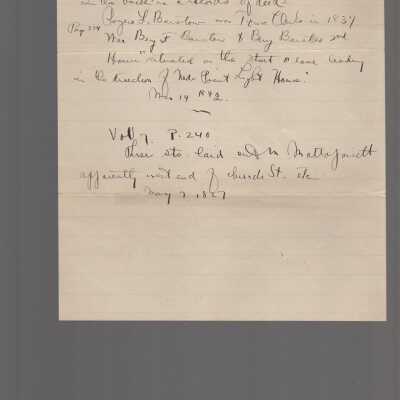 in the
records of deeds
Rogers L. Barstow was Town Clerk in 1837
Page 239
Was Benj F Barstow &
House" situated on the street or lane leading
in the direction of Neds Point Light House."
Mar 14 1842.
Vol 7. P. 240
Three sts. laid out in Mattapoisett
apparently west end of church St. etc
May 7. 1827